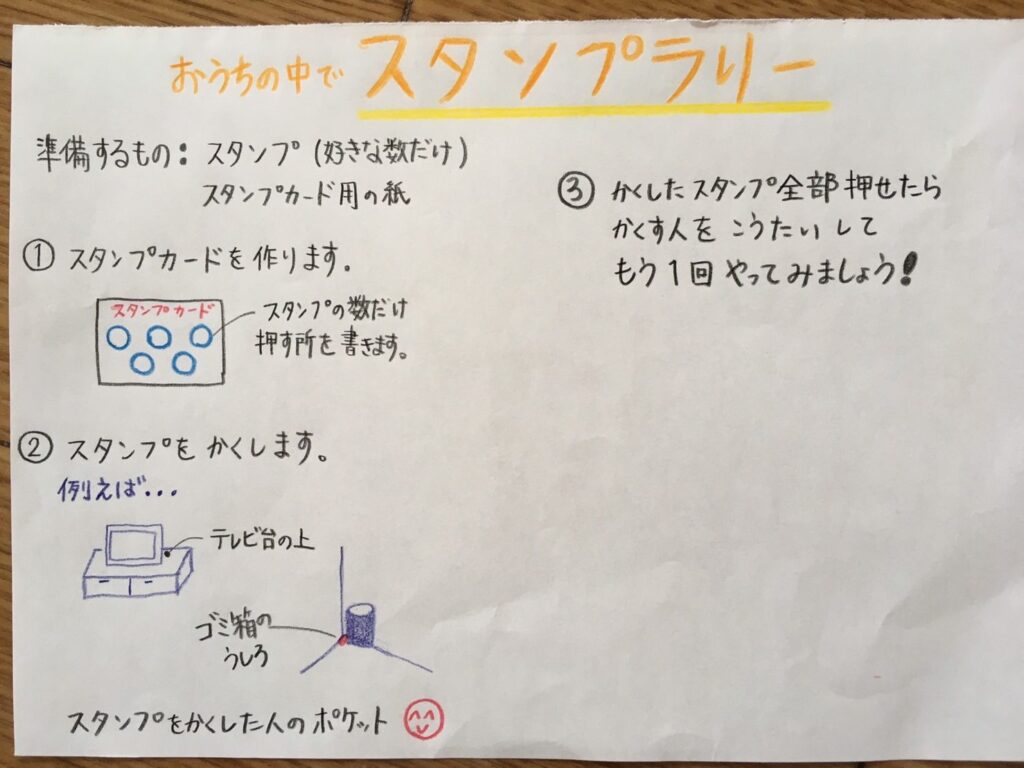 おうちの中で スタンプラリー
準備するもの: スタンプ (好きな数だけ)
スタンプカード用の紙
① スタンプカードを作ります。
スタンプカード
スタンプの数だけ
押す所を書きます。
② スタンプを かくします。
例えば...
テレビ台の上
ゴミ箱の
うしろ
スタンプをかくした人のポケット
③ かくしたスタンプ全部押せたら
かくす人を こうたいして
もう1回 やってみましょう!